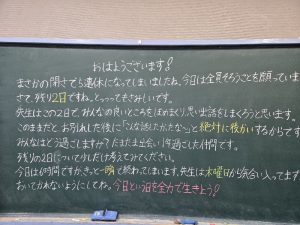 おはようございます!
まさかの閉さで5連休になってしまいましたね。今日は全員そろうことを願っています
さて、残り2日ですね。とっってもさみしいです。
先生はこの2日で、みんなの良いところをほめまくり、思い出話をしまくろうと思います。
このままだと、お別れした後に「〇〇な話したかたな〜」と絶対に後かいするからです
みんなはどう過ごしますか?たまたま出会い1年過ごした仲間です。
残りの2日について少しだけ考えてみてください。
今日は6時間ですが、きっと一瞬で終わってしまいます。先生は木曜日から気合い入ってます
おいてかれないようにしてね。今日という日を全力で生きよう!